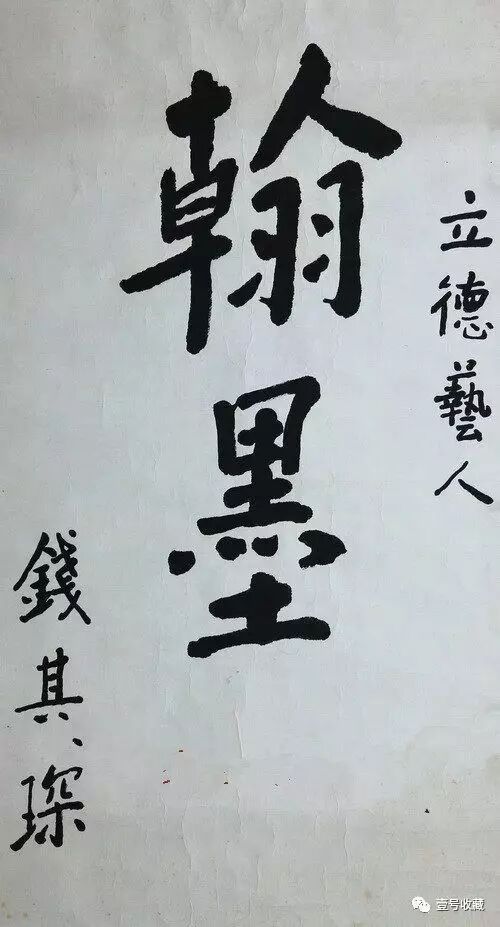 立德藝人
翰墨
錢其琛
壹号收藏